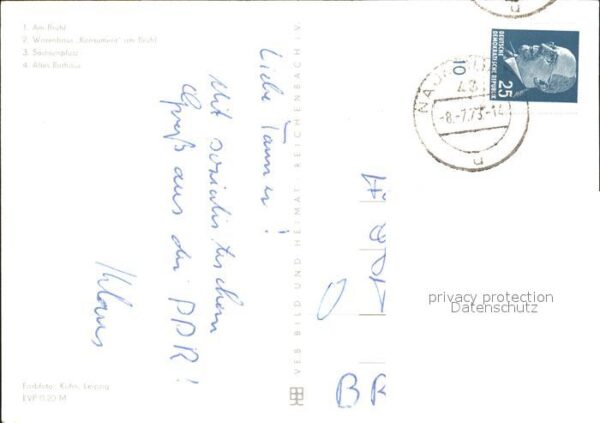 1. Am Brühl
2. Warenhaus „Konsument" am Brühl
3. Sachsenplatz
4. Altes Rathaus
Liebe
Mit sozialistischem
Gruß aus der DDR!
Klaus
Farbfoto: Kühn, Leipzig
EVP 0,20 M
VEB BILD UND HEIMAT REICHENBACH I. V.
DEUTSCHE
DEMOKRATISCHE REPUBLIK
25
10
-8.-7.73-14
privacy protection
Datenschutz